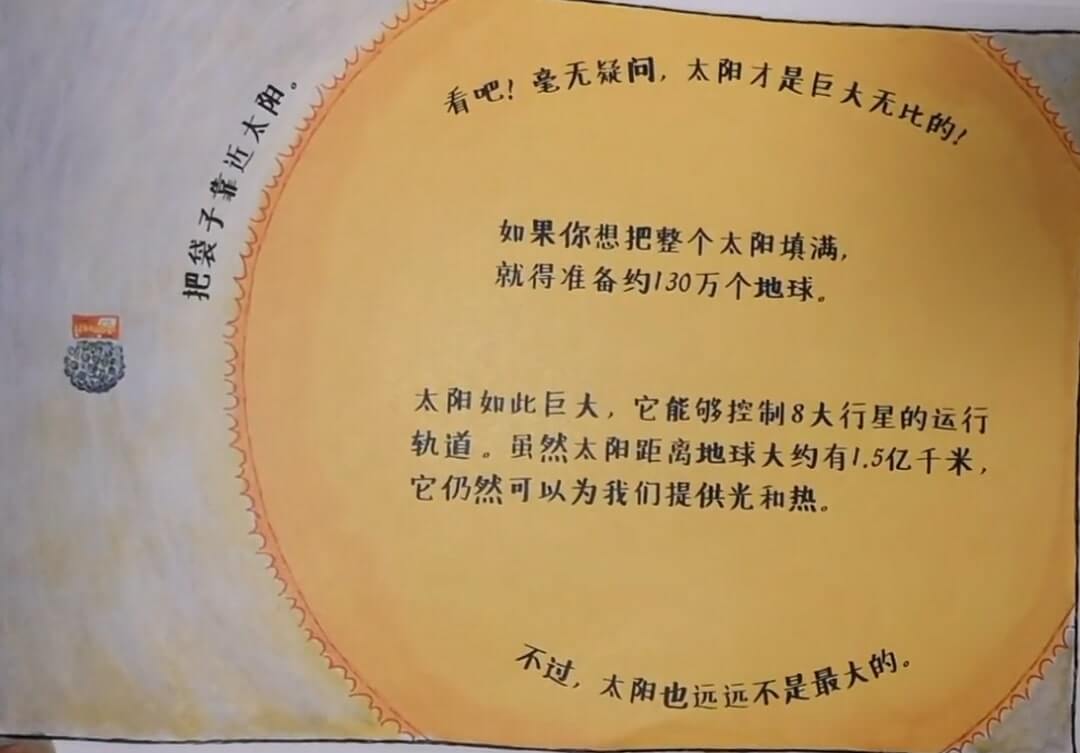 把袋子靠近太阳。
看吧！毫无疑问，太阳才是巨大无比的！
如果你想把整个太阳填满，
就得准备约130万个地球。
太阳如此巨大，它能够控制8大行星的运行
轨道。虽然太阳距离地球大约有1.5亿千米，
它仍然可以为我们提供光和热。
不过，太阳也远远不是最大的。